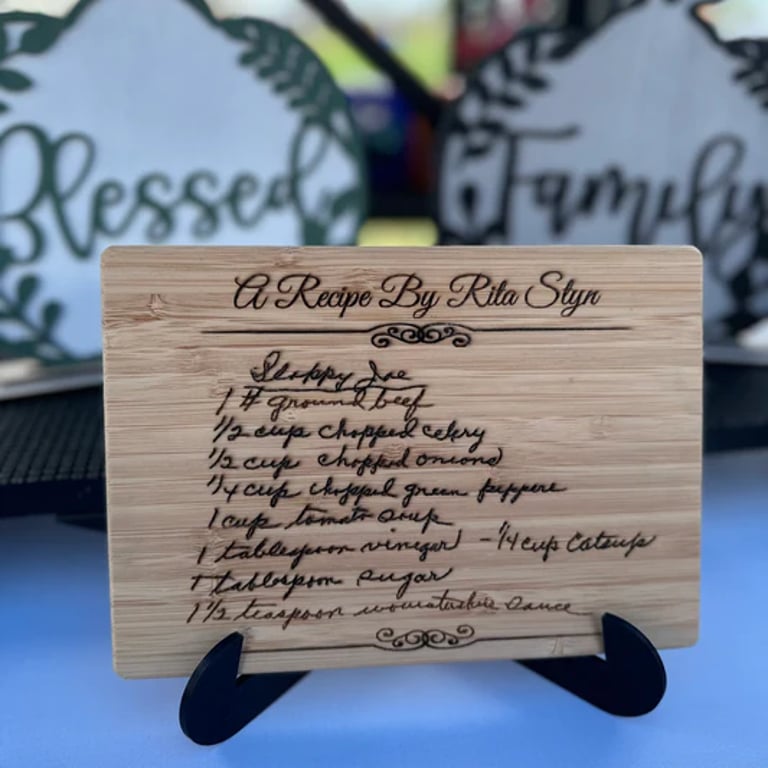 Blessed
Family
A Recipe By Rita Styn
Sloppy Joe
1 # ground beef
1/2 cup chopped celery
1/2 cup chopped onions
1/4 cup chopped green peppers
1 cup tomato soup
1 tablespoon vinegar - 1/4 cup Catsup
1 tablespoon sugar
1 1/2 teaspoon sauce